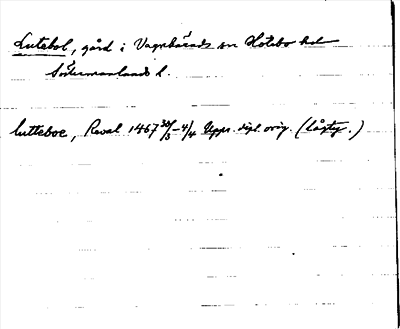 Lutebol, gård i Vagnhärads sn Hölebo hd
Södermanlands l.
lutteboe, Reval 1467 30/3-4/4 Upps. dipl. orig. (Lågty.)